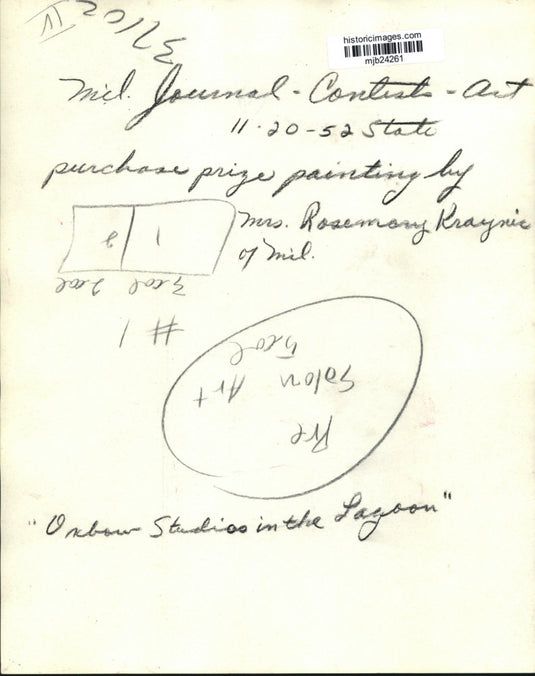 historicimages.com
mjb24261
Mil. Journal - Contests - Art
11-20-52 State
purchase prize painting by
Mrs. Rosemary Kraynic
of Mil.
2 1
2 col 3 col
# 1
Pre
Salon Art
5 col
"Oxbow Studios in the Lagoon"